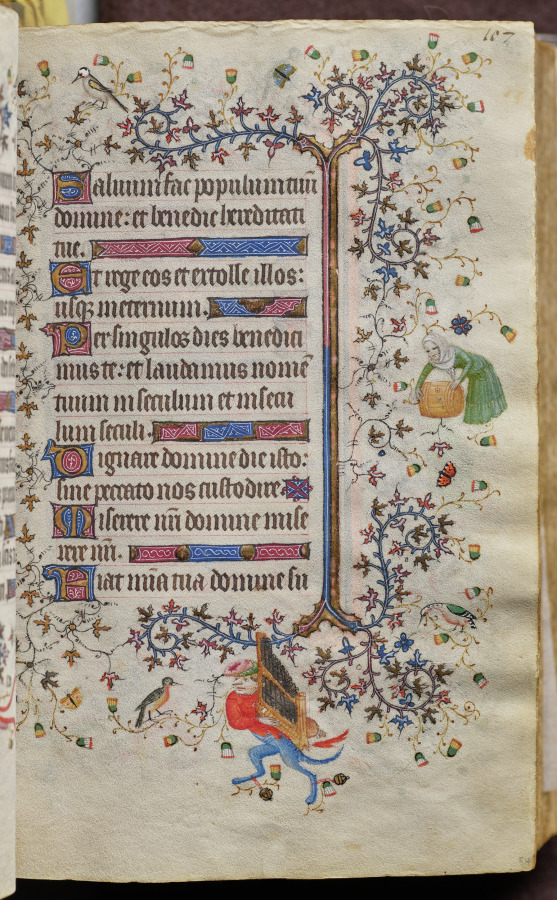 107
Saluum fac populum tuū
domine: et benedic hereditati
tue.
Et rege eos et extolle illos:
usqꝫ in eternum.
Per singulos dies benedici
mus te: et laudamus nomē
tuum in seculum et in secu
lum seculi.
Dignare domine die isto:
sine peccato nos custodire
Miserere nr̄i domine mise
rere nr̄i.
Fiat mīa tua domine su